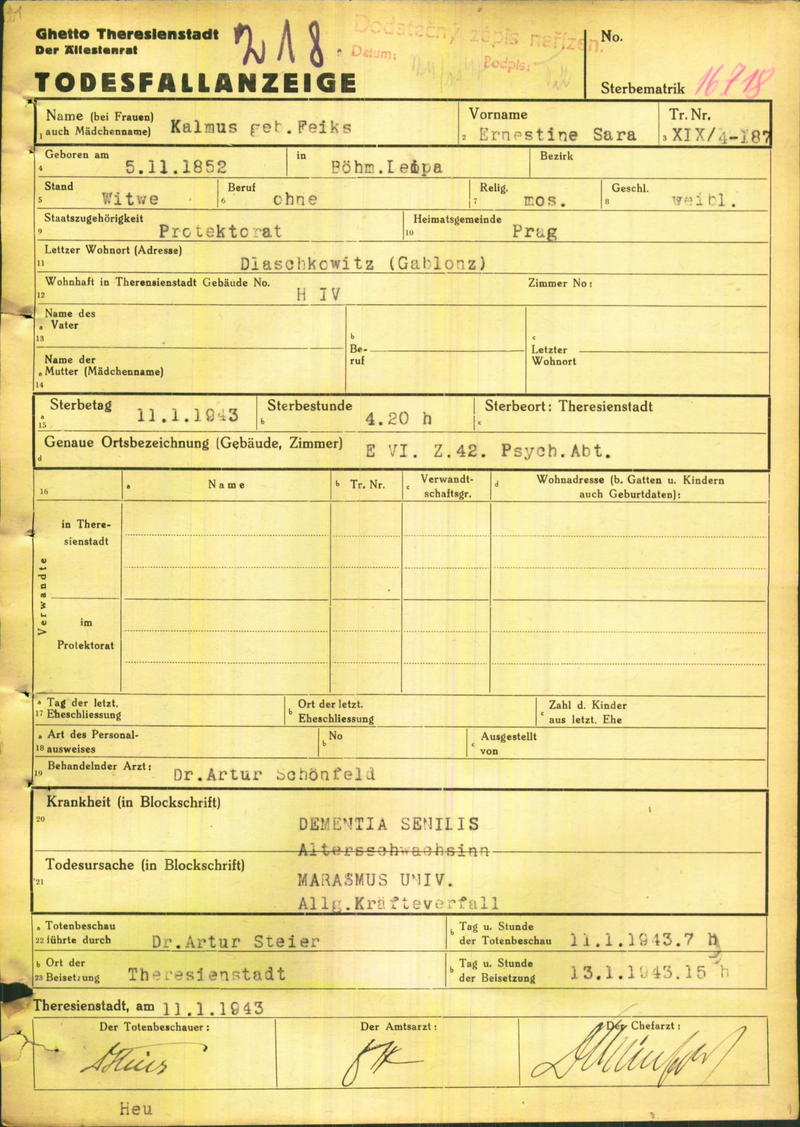 Ghetto Theresienstadt
Der Ältestenrat
TODESFALLANZEIGE
218.
Dodatečný zápis nařízen.
Datum:
Podpis:
No.
Sterbematrik 16718
Name (bei Frauen) Kalmus geb.Feiks
1 auch Mädchenname)
Vorname
2 Ernestine Sara
Tr. Nr.
3 XIX/4-187
Geboren am
4 5.11.1852
in Böhm.Leipa
Bezirk
Stand
5 Witwe
Beruf
6 ohne
Relig.
7 mos.
Geschl.
8 weibl.
Staatszugehörigkeit
9 Protektorat
Heimatsgemeinde
10 Prag
Lettzer Wohnort (Adresse)
11 Dlaschkowitz (Gablonz)
Wohnhaft in Therensienstadt Gebäude No.
12 H IV
Zimmer No:
Name des
a Vater
13
Name der
a Mutter (Mädchenname)
14
b
Be-
ruf
c
Letzter
Wohnort
Sterbetag 11.1.1943
a
15
Sterbestunde
b 4.20 h
Sterbeort: Theresienstadt
c
Genaue Ortsbezeichnung (Gebäude, Zimmer) E VI. Z.42. Psych.Abt.
d
16
a Name
b Tr. Nr.
c Verwandt-
schaftsgr.
d Wohnadresse (b. Gatten u. Kindern
auch Geburtdaten):
Verwandte
in There-
sienstadt
im
Protektorat
a Tag der letzt.
17 Eheschliessung
b Ort der letzt.
Eheschliessung
c Zahl d. Kinder
aus letzt. Ehe
a Art des Personal-
18 ausweises
No
b
c Ausgestellt
von
Behandelnder Arzt:
19 Dr.Artur Schönfeld
Krankheit (in Blockschrift)
20 DEMENTIA SENILIS
Altersschwachsinn
Todesursache (in Blockschrift)
21 MARASMUS UNIV.
Allg.Kräfteverfall
a Totenbeschau
22 führte durch Dr.Artur Steier
b Tag u. Stunde
der Totenbeschau 11.1.1943.7 h
b Ort der
23 Beisetzung Theresienstadt
b Tag u. Stunde
der Beisetzung 13.1.1943.15 h
Theresienstadt, am 11.1.1943
Der Totenbeschauer:
Der Amtsarzt:
Der Chefarzt:
Heu